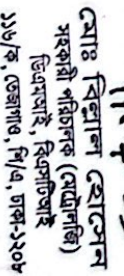 মোঃ বিল্লাল হোসেন
সরকারী পরিচালক (মেট্রোলজি)
বিএসটিআই
১১৬/ক তেজগাঁও, শি/এ, ঢাকা-১২০৮